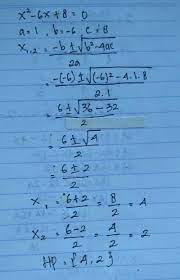 x²-6x+8=0
a=1, b=-6, c=8
x₁,₂ = (-b±√(b²-4ac))/2a
= (-(-6)±√((-6)²-4.1.8))/2.1
= (6±√(36-32))/2
= (6±√4)/2
= (6±2)/2
x₁ = (6+2)/2 = 8/2 = 4
x₂ = (6-2)/2 = 4/2 = 2
HP = {4,2}